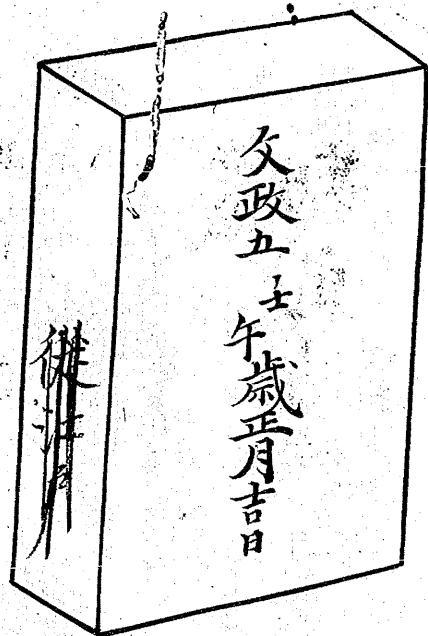 文政五壬午歳正月吉日